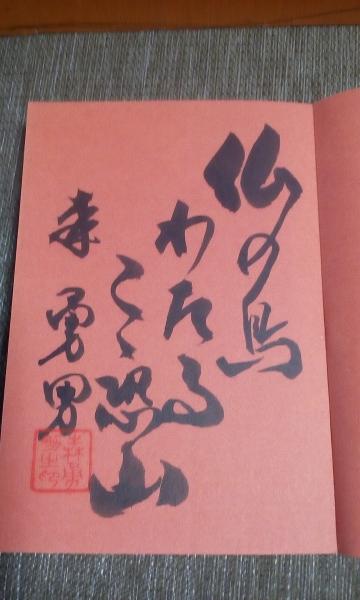 仏の鳥
わたる
こゝ恐山
森勇男